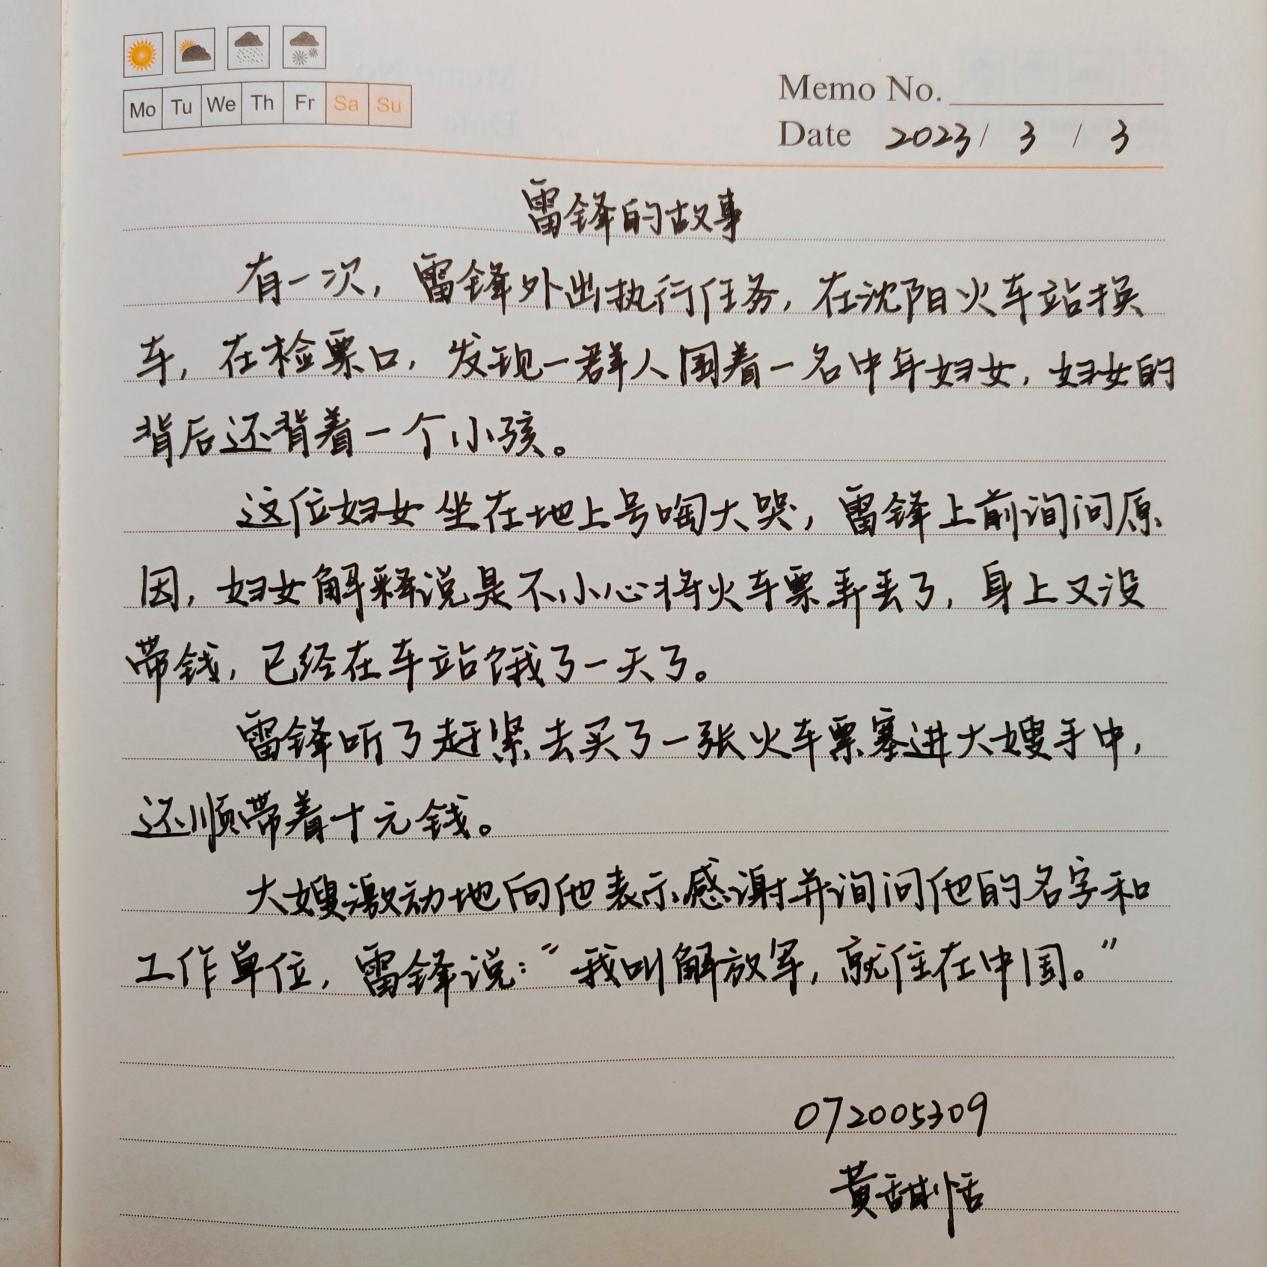 Mo Tu We Th Fr Sa Su
Memo No.
Date 2023/ 3 / 3
雷锋的故事
有一次，雷锋外出执行任务，在沈阳火车站换
车，在检票口，发现一群人围着一名中年妇女，妇女的
背后还背着一个小孩。
这位妇女坐在地上号啕大哭，雷锋上前询问原
因，妇女解释说是不小心将火车票弄丢了，身上又没
带钱，已经在车站饿了一天了。
雷锋听了赶紧去买了一张火车票塞进大嫂手中，
还顺带着十元钱。
大嫂激动地向他表示感谢并询问他的名字和
工作单位，雷锋说：“我叫解放军，就住在中国。”
072005309
黄甜恬